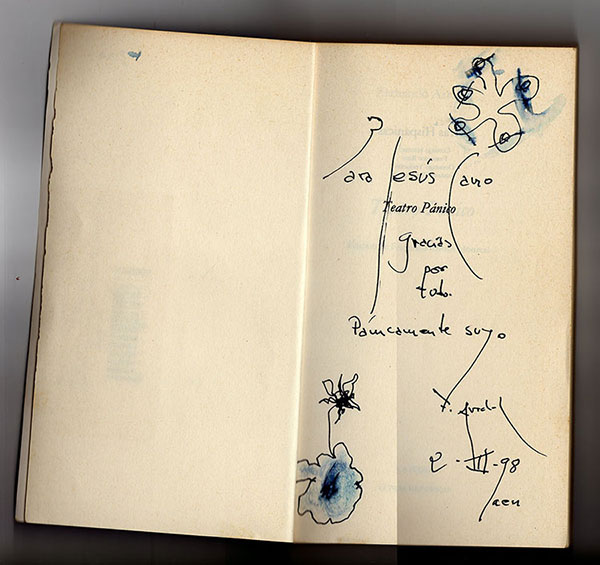 Para Jesús Cano
Teatro Pánico
gracias
por
todo.
Pánicamente suyo
F. Arrabal
2-III-98
Jaen